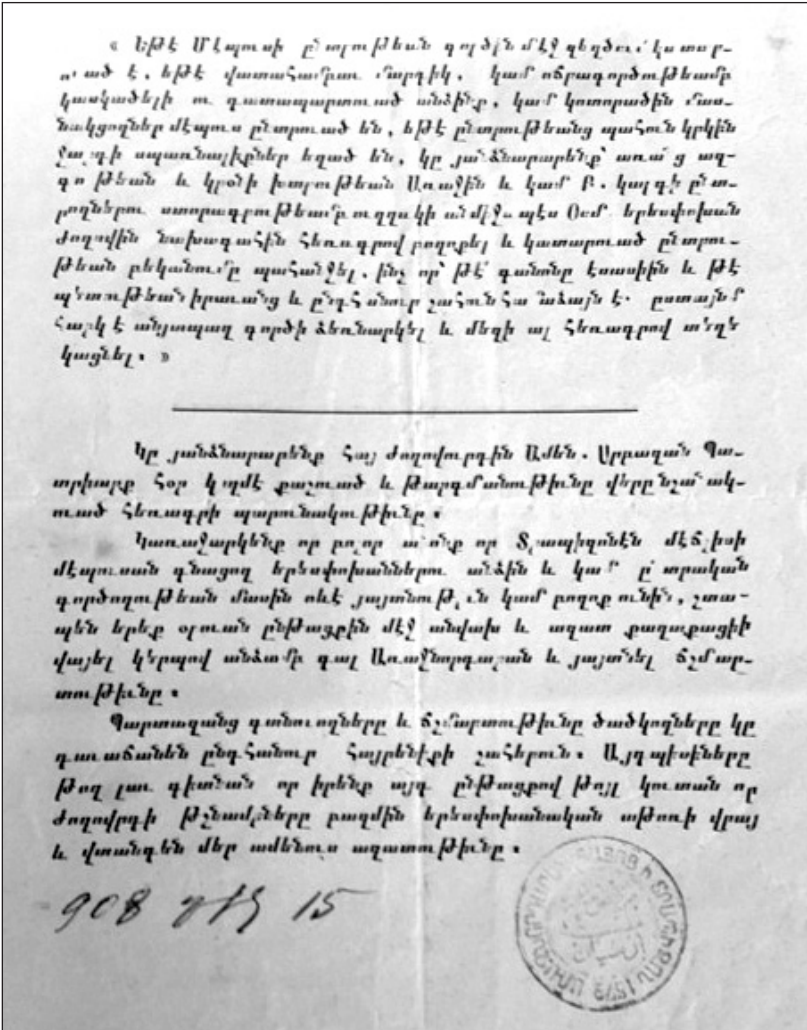 « Եթէ Մէպուսի ընտրութեան գործին մէջ զեղծում կատար-
ուած է, եթէ վատահամբաւ մարդիկ, կամ ոճրագործութեամբ
կասկածելի ու դատապարտուած անձինք, կամ կոտորածին մաս-
նակցողներ մէպուս ընտրուած են, եթէ ընտրութեանց պահուն կրկին
ջարդի սպառնալիքներ եղած են, կը յանձնարարենք՝ առանց ազ-
գութեան և կրօնի խտրութեան Առաջին և կամ Բ. կարգի ընտ-
րողներու ստորագրութեամբ ուղղակի անմիջապէս Օսմ. երեսփոխան
ժողովին նախագահին հեռագրով բողոքել և կատարուած ընտրու-
թեան բեկանումը պահանջել, ինչ որ թէ՛ գանոնը էսասիին և թէ
պետութեան իրաւանց և ընդհանուր շահուն համաձայն է. ըստայնմ
հարկ է անյապաղ գործի ձեռնարկել և մեզի ալ հեռագրով տեղե
կացնել. »
Կը յանձնարարենք հայ ժողովուրդին Ամեն. Սրբազան Պա-
տրիարք հօր կողմէ քաշուած և թարգմանութիւնը վերը նշանակ-
ուած հեռագրի պարունակութիւնը.
Կառաջարկենք որ բոլոր անոնք որ Տրապիզոնէն մէճլիսի
մէպուսան գնացող երեսփոխաններու անձին և կամ ընտրական
գործողութեան մասին ոևէ յայտնութիւն կամ բողոք ունին, շտա-
պեն երեք օրուան ընթացքին մէջ անվախ և ազատ քաղաքացիի
վայել կերպով անձամբ գալ Առաջնորդարան և յայտնել ճշմար-
տութիւնը.
Պարտազանց գտնուողները և ճշմարտութիւնը ծածկողները կը
դաւաճանեն ընդհանուր Հայրենիքի շահերուն. Այդպիսիները
թող լաւ գիտնան որ իրենք այդ ընթացքով թոյլ կուտան որ
ժողովրդի թշնամիները բազմին երեսփոխանական աթոռի վրայ
և վտանգեն մեր ամենուս ազատութիւնը.
908 դեկ 15